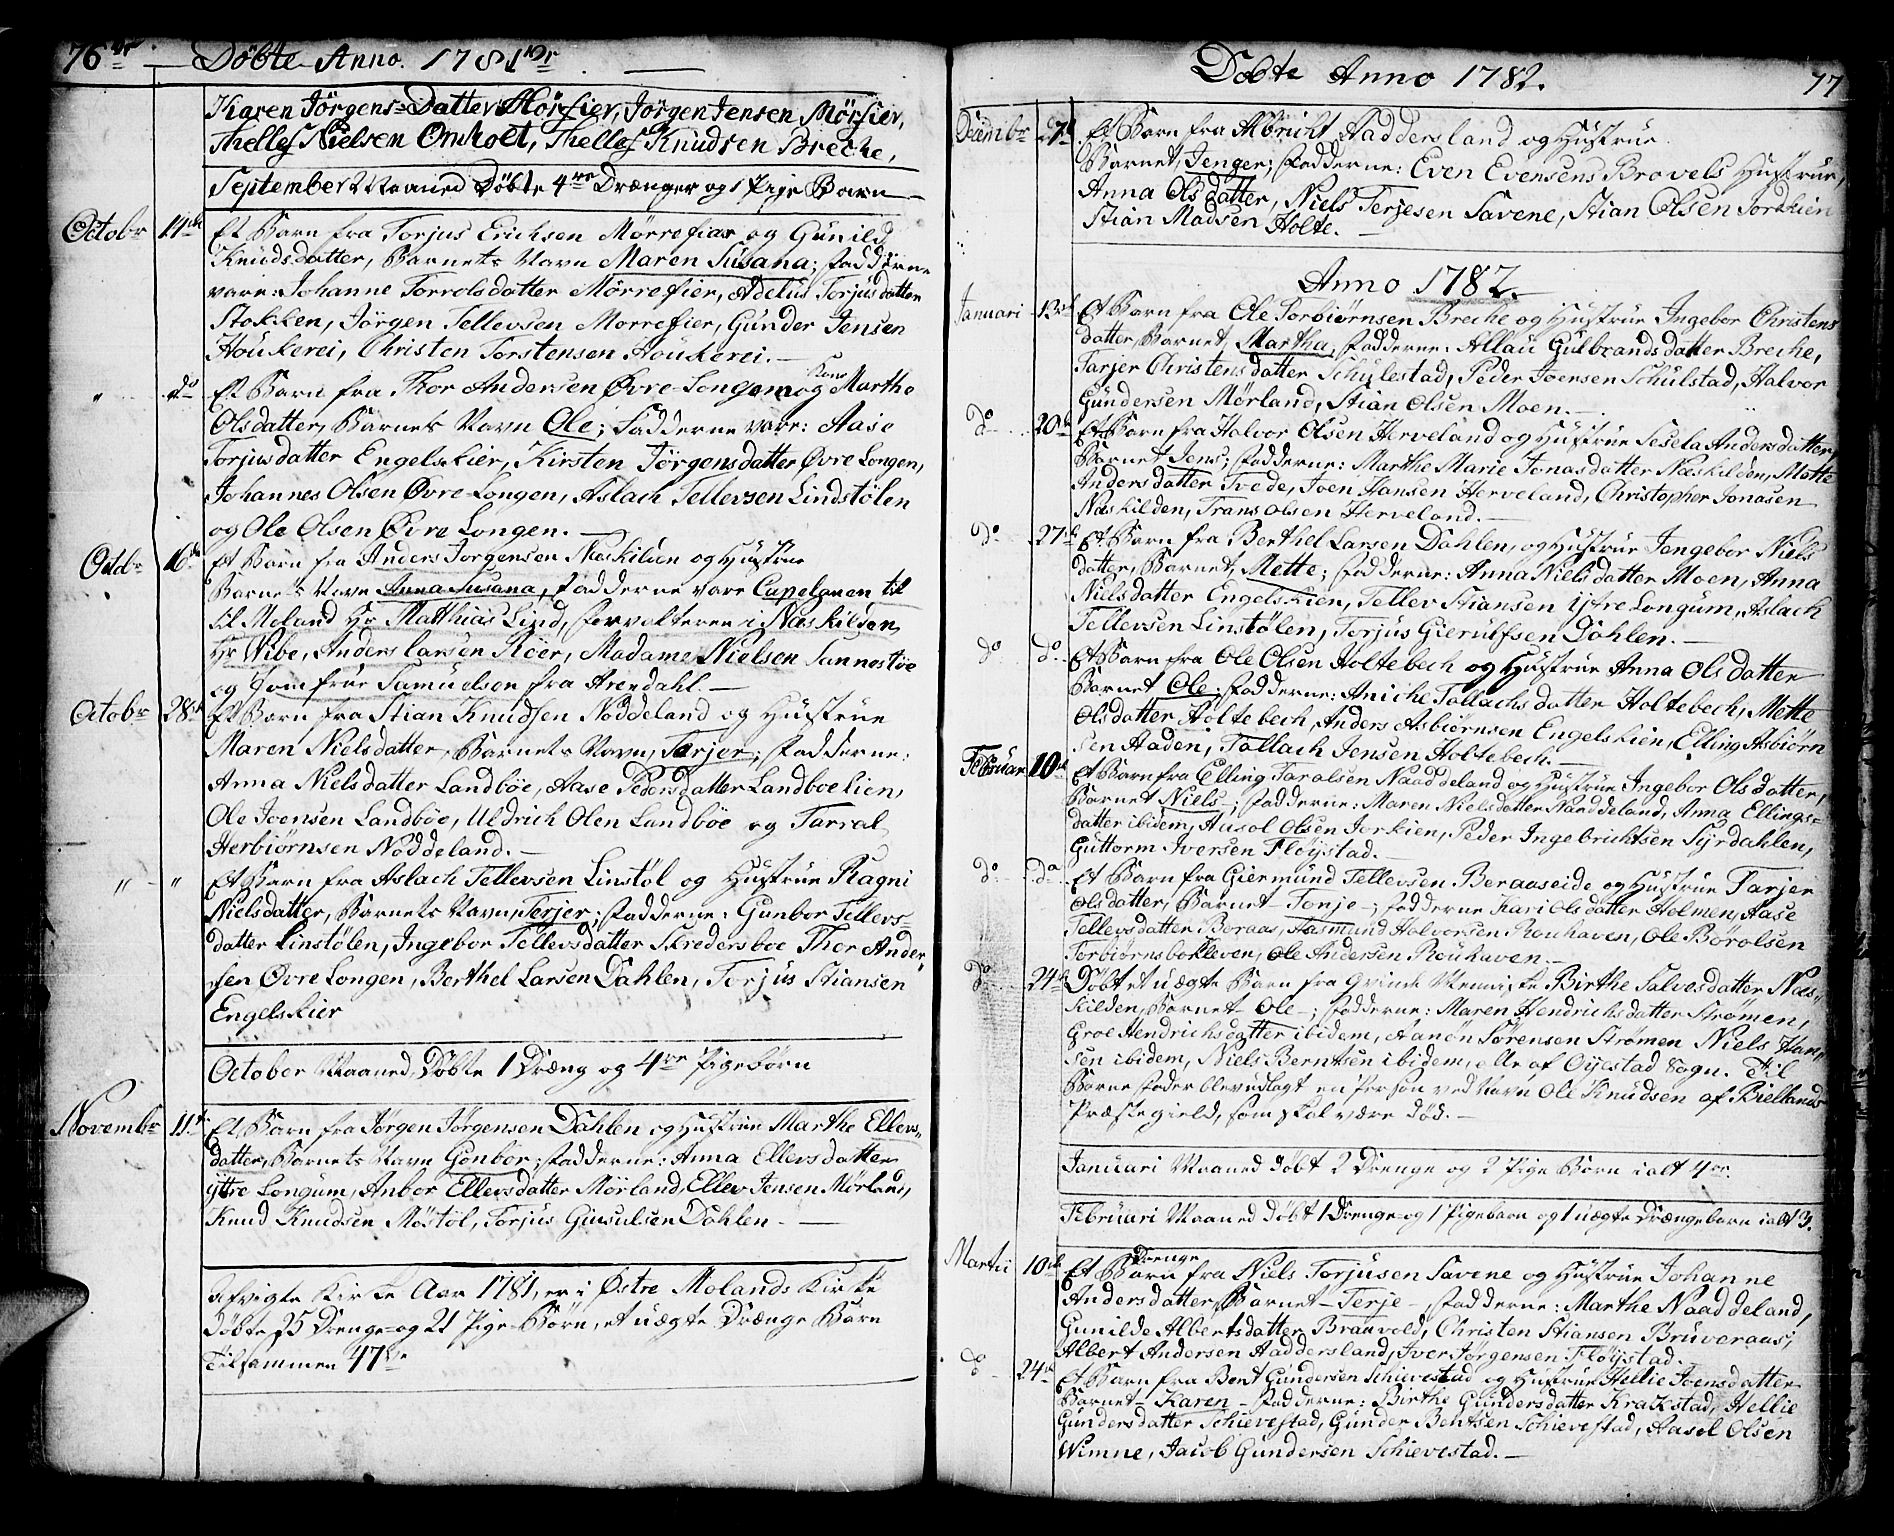 76de Döbte Anno. 1781
Karen Jörgens=Datter Mörfier, Jörgen Jensen Mörfier,
Thellef Nielsen Omholt, Thellef Knudsen Breche,
September Maaned Döbte 4re Drænger og 1 Pige Barn
Octobr 14de Et Barn fra Torjus Erichsen Mörrefiær og Gunild
Knudsdatter, Barnets Navn Maren Susana; fadderne
vare: Johanne Torrolsdatter Mörrefier, Adelus Torjusdatter
Stokken, Jörgen Tellevsen Morrefier, Gunder Jensen
Houkerei, Christen Torstensen Houkerei.
" do Et Barn fra Thor Andersen Øvre Longom og Kone Marthe
Olsdatter, Barnets Navn Ole; Fadderne vare: Aase
Torjusdatter Engelskier, Kirsten Jörgensdatter Øvre Longen,
Johannes Olsen Øvre Longen, Aslach Tellevsen Lindstølen
og Ole Olsen Øvre Longen.
Octbr 16de Et Barn fra Anders Jorgensen Næskilden og Hustrue
Barnets Navn Anna Susana, Fadderne vare Capelanen til
til Moland Hr Matthias Lind, forvalteren i Næskilden
Hr Wibe, Anders Larsen Röer, Madame Nielsen Sannestøe
og Jomfrue Samuelsen fra Arendahl.
Octobr 28de Et Barn fra Stian Knudsen Noddeland og Hustrue
Maren Nielsdatter, Barnets Navn, Tarjer; fadderne:
Anna Nielsdatter Landböe, Aase Pedersdatter Landboelien,
Ole Joensen Landböe, Uldrich Olen Landböe og Tarral
Herbiörnsen Noddeland.
" " Et Barn fra Aslach Tellevsen Linstøl og Hustrue Ragni
Nielsdatter, Barnets Navn, Terjer; fadderne: Gunbor Tellevs=
datter Linstølen, Ingebor Tellevsdatter Skredersboe Thor Ander=
sen Øvre Longen, Berthel Larsen Dahlen, Torjus Stiansen
Engelskier
October Maaned, Döbte 1 Dræng og 4re Pigebörn
Novembr 11te Et Barn fra Jörgen Jörgensen Dahlen og Hustrue Marthe Ellevs=
datter, Barnets Navn Gonbor; fadderne: Anna Ellevsdatter
ÿttre Longum, Anbor Ellevsdatter Mörland, Ellev Jensen Mörland,
Knud Knudsen Möstöl, Torjus Giersulsen Dahlen
Afvigte Kirke Aar 1781, er i Østre Molands Kirke
döbte 25 Drenge og 21 Pige Börn, et uægte Drænge Barn
Tilsammen 47
Döbte Anno 1782. 77
Decembr 27de Et Barn fra Albricht Aaddersland og Hustrue
Barnet, Jenger; fadderne: Even Evensens Brovels Hustrue,
Anna Olsdatter, Niels Terjesen Savene, Stian Olsen Jordkien
Stian Madsen Holte.
Anno 1782.
Januari 13de Et Barn fra Ole Torbiørnsen Breche og Hustrue Ingebor Christens
datter, Barnet, Martha, fadderne: Allau Gulbrandsdatter Breche,
Tarjer Christensdatter Schulestad, Peder Joensen Schulstad, Halvor
Gundersen Mörland, Stian Olsen Moen.
do 20de Et Barn fra Halvor Olsen Herveland og Hustrue Sesela Andersdatter,
Barnet Jens; fadderne: Marthe Marie Jonasdatter Næskilden, Mette
Andersdatter Tvede, Joen Hansen Herveland, Christopher Jonasen
Næskilden, Trans Olsen Herveland.
do 27de Et Barn fra Berthel Larsen Dahlen, og Hustrue Jengebor Niels
datter, Barnet, Mette; fadderne: Anna Nielsdatter Moen, Anna
Nielsdatter Engelskien, Tellev Stiansen ÿtre Longum, Aslach
Tellevsen Linstølen, Torjus Gierulfsen Dohlen.
do do Et Barn fra Ole Olsen Holtebech og Hustrue Anna Olsdatter
Barnet Ole, fadderne: Aniche Tallachsdatter Holtebech, Mette
Olsdatter Holtebech, Anders Asbiørnsen Engelskien, Elling Asbiørn
sen Haden, Tallach Jensen Holtebech.
Februar 10de Et Barn fra Elling Taralsen Naaddeland og Hustrue Ingebor Olsdatter,
Barnet Niels; fadderne: Maren Nielsdatter Naaddeland, Anna Ellings=
datter ibidem, Ausol Olsen Jorkien, Peder Ingebrichtsen Syrdahlen,
Guttorm Iversen Fløystad.
do do Et Barn fra Giermund Tellevsen Beraaseide og Hustrue Tarjer
Olsdatter, Barnet Tonje; fadderne Kari Olsdatter Holmen, Aase
Tellevsdatter Beraas, Aasmund Halvorsen Rouhaven, Ole Börolsen
Torbiørnsbokleven, Ole Andersen Rouhaven.
do 24de Döbt et uægte Barn fra Qvinde Menniske Birthe Salvesdatter Næs=
kilden, Barnet Ole; fadderne: Maren Hendrichsdatter Strømen,
Groe Hendrichsdatter ibidem, Aanon Sørensen Strømen Niels Han=
sen ibidem, Niels Berntsen ibidem, alle af Oyestad Sogn. Til
Barne fader blev udlagt en Person ved Navn Ole Knudsen af Biellands
Præstegield, som skal være död.
Januari Maaned döbt 2 Drenge og 2 Pige Börn ialt 4re.
Februari Maaned döbt 1 Drenge og 1 Pigebarn og 1 uægte Drængebarn ialt 3.
Martii 10de Et Drenge Barn fra Niels Torjusen Savene og Hustrue Johanne
Andersdatter, Barnet Terje, fadderne: Marthe Naaddeland,
Gunilde Albertsdatter Branvold, Christen Stiansen Bruveraas,
Albert Andersen Aaddersland, Iver Jørgensen Fløystad.
do 24de Et Barn fra Bent Gundersen Schievestad og Hustrue Hellie Joensdatter
Barnet Karen fadderne: Birthe Gundersdatter Krakstad, Hellie
Gundersdatter Schievestad, Gunder Bentsen Schievestad, Aasol Olsen
Wimne, Jacob Gundersen Schievestad.